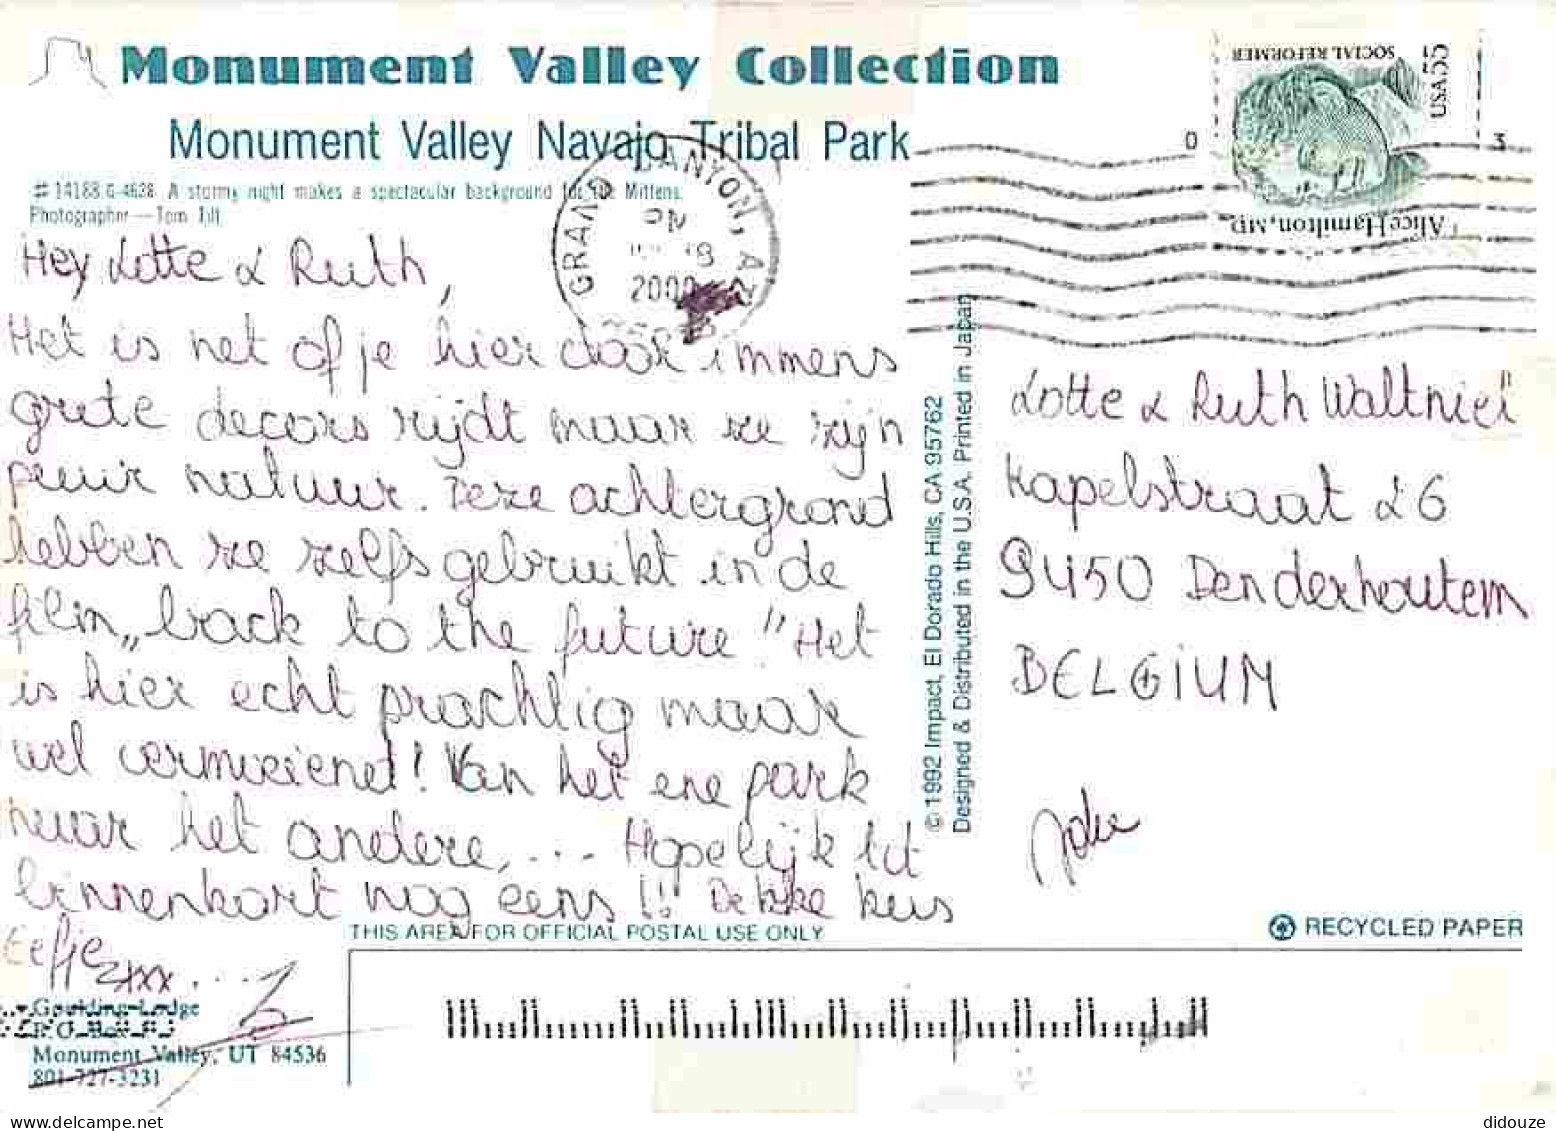 Monument Valley Collection
Monument Valley Navajo Tribal Park
# 14188 G-4628 A stormy night makes a spectacular background for the Mittens.
Photographer — Tom Till
GRAND CANYON, AZ
PM
2000
SOCIAL REFORMER
USA
Alice Hamilton, MD
0 3
Hey Lotte & Ruth,
Het is net of je hier door immens
grote decors rijdt maar ze zijn
puur natuur. Deze achtergrond
hebben ze zelfs gebruikt in de
film „back to the future" Het
is hier echt prachtig maar
wel vermoeiend! Van het ene park
naar het andere, ... Hopelijk tot
binnenkort nog eens!! Dikke kus
Eefje xxx...
Lotte & Ruth Waltniel
Kapelstraat 26
9450 Denderhoutem
BELGIUM
© 1992 Impact, El Dorado Hills, CA 95762
Designed & Distributed in the U.S.A. Printed in Japan
RECYCLED PAPER
THIS AREA FOR OFFICIAL POSTAL USE ONLY
Goulding-Lodge
Monument Valley, UT 84536
801-727-3231
didouze